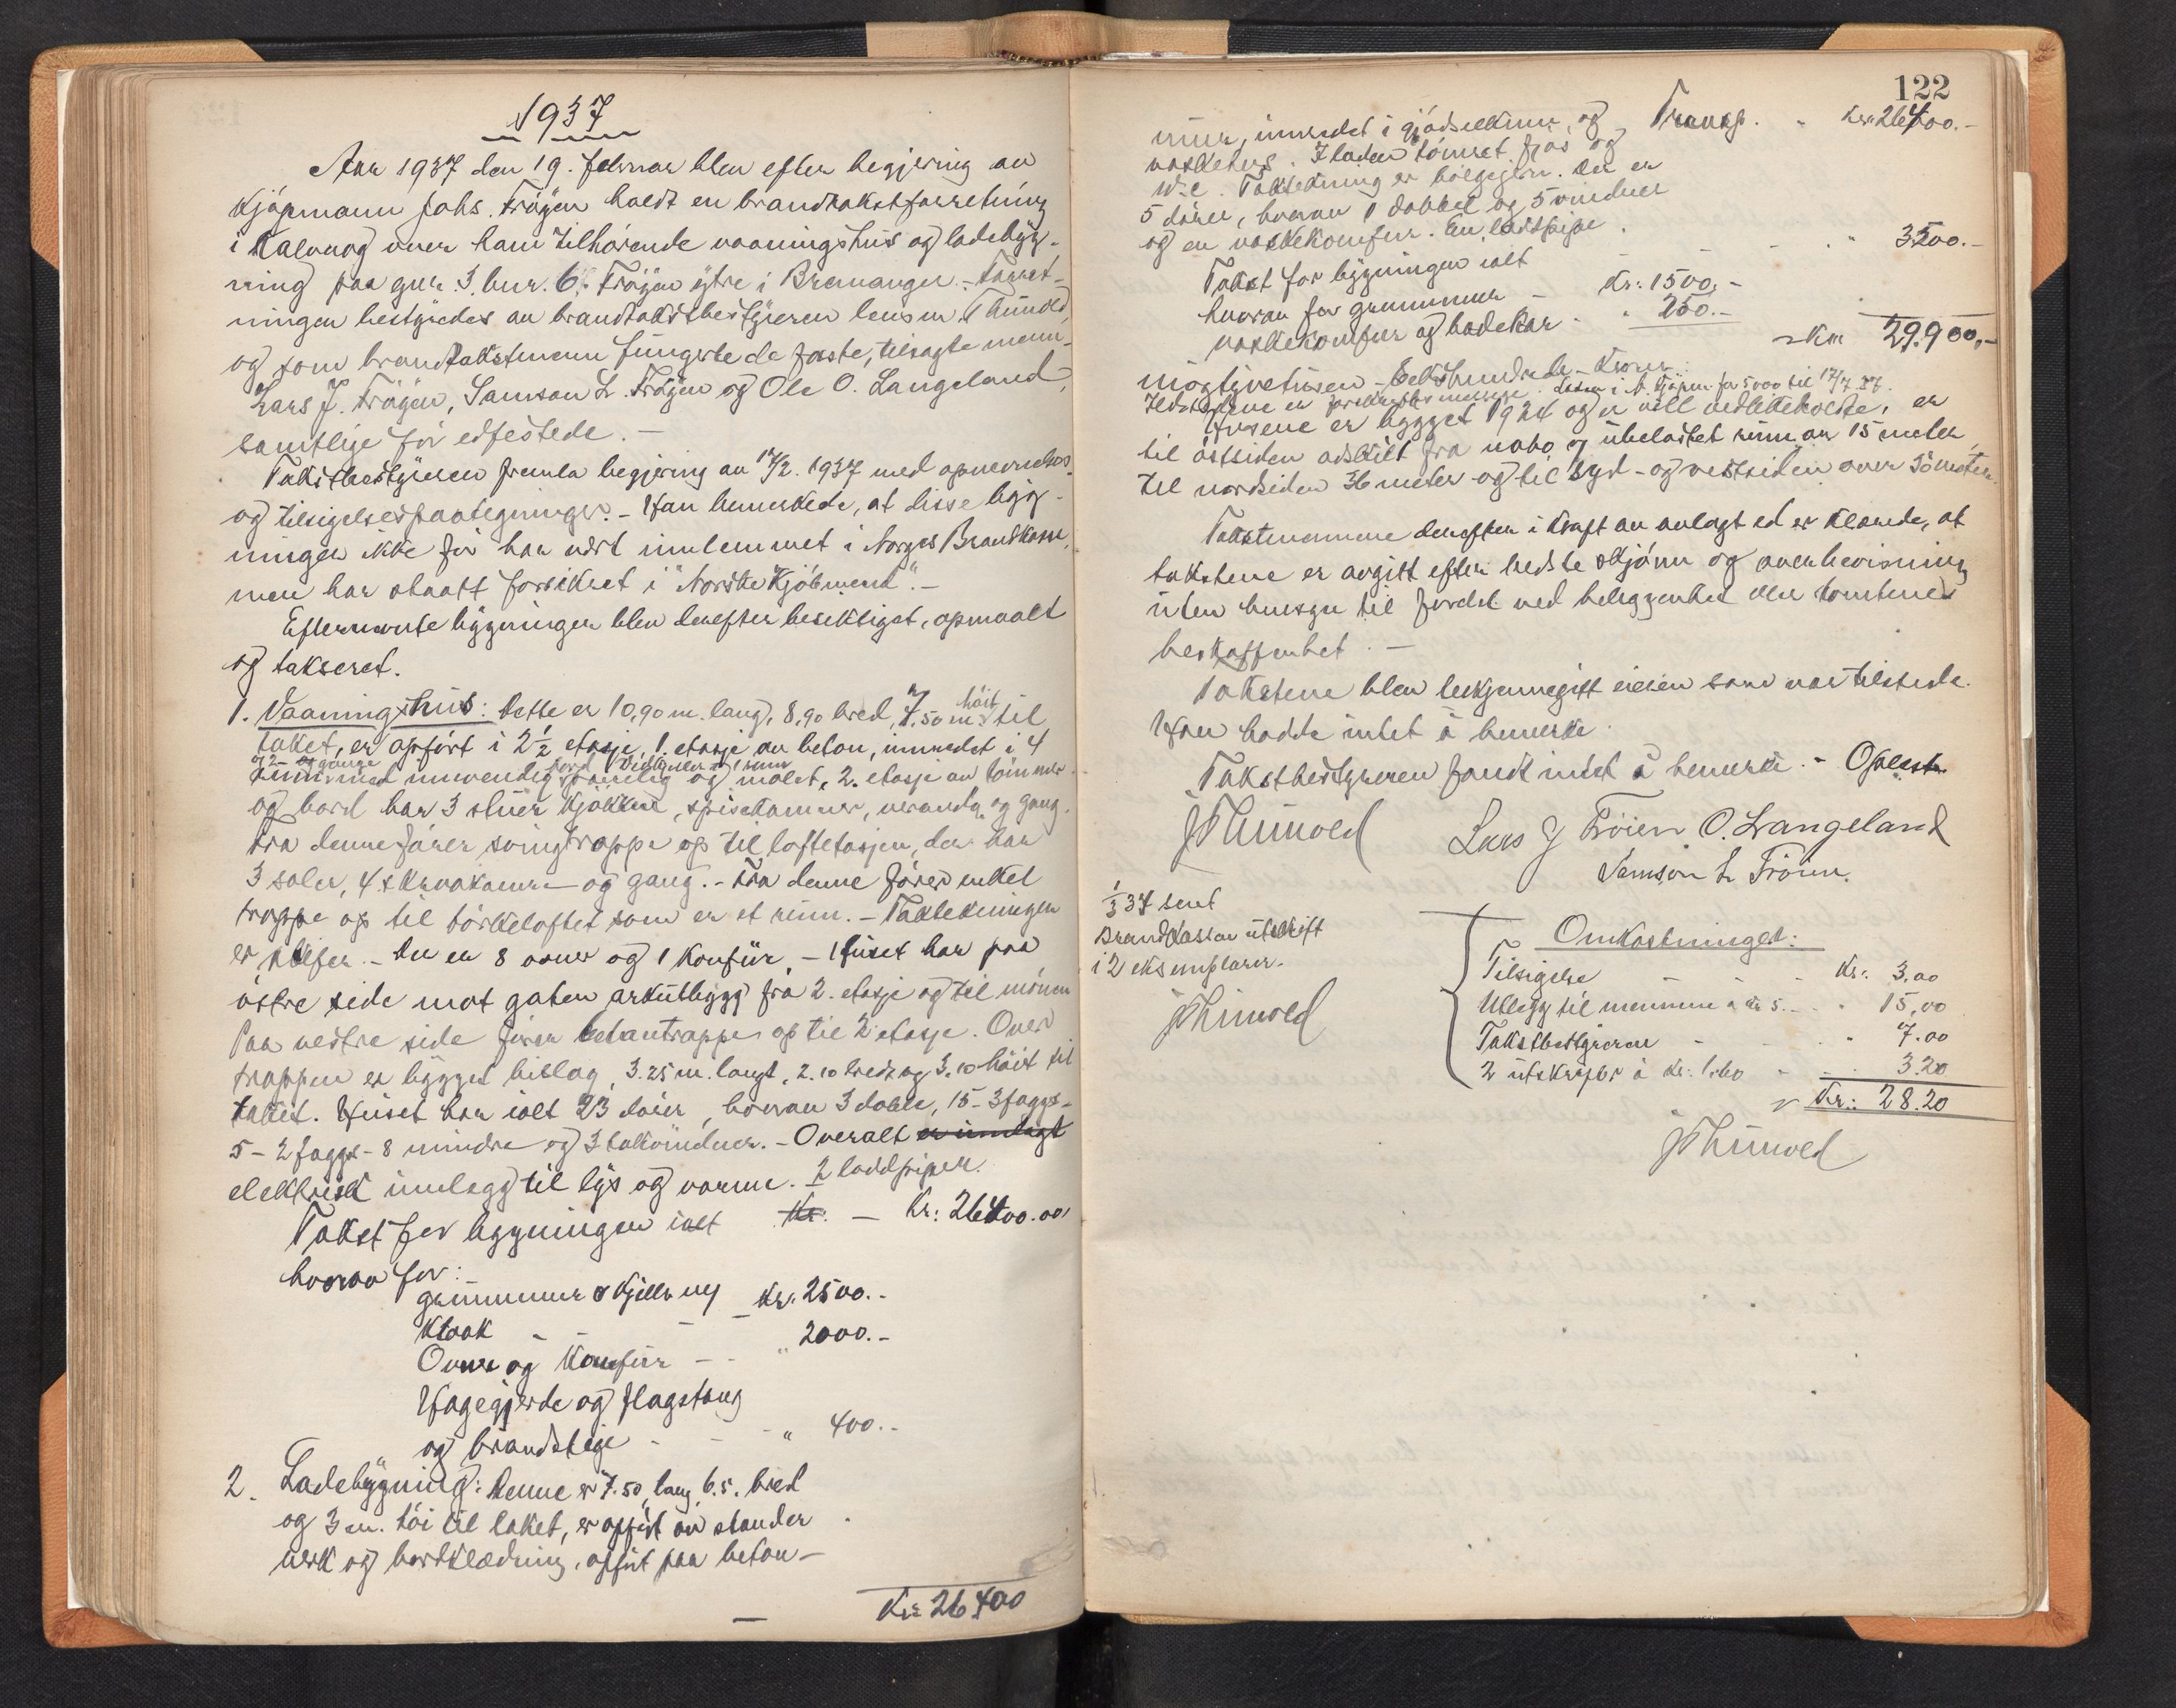 1937
Aar 1937 den 19. februar blev efter begjering av
Kjøpmann Johs. Frøyen holdt en brandtakstforretning
i Kalvaag over ham tilhørende vaaningshus og ladebyg-
ning paa gnr. 3. bnr. 6. Frøyen ytre i Bremanger. - Forret-
ningen bestyredes av brandtakstbestyreren lensm. Thunold,
og som brandtakstmenn fungerte de faste, tilsagte menn-
Lars J. Frøyen, Samson L. Frøyen og Ole O. Langeland,
samtlige før edfestede. -
Takstbestyreren fremla begjering av 17/2. 1937 med opnevnelses
og tilsigelsespaategninger. - Han bemerkede, at disse byg-
ninger ikke før har vært innlemmet i Norges Brandkasse,
men har staatt forsikret i "Norske Kjøbmend". -
Efternevnte bygninger blev derefter besiktiget, opmaalt
og taksert.
1. Vaaningshus: Dette er 10,90 m. lang, 8,90 bred, 7.50 m. høit til
taket, er opført i 2½ etasje, 1. etasje av beton, innredet i 4
rum med innvendig og malet, 2. etasje av tømmer
og bord har 3 stuer kjøkken, spisekammer, veranda og gang.
Fra denne fører svingtrappe op til loftetasjen, der har
3 saler, 4 skraakamre og gang. - Fra denne fører enkel
trappe op til tørkeloftet som er et rum. - Taktekningen
er skifer. - Der er 8 ovner og 1 komfür, - Huset har paa
østre side mot gaten arkutbygg fra 2. etasje og til mønen
Paa vestre side fører betontrappe op til 2 etasje. Over
trappen er bygget bislag, 3.25 m. langt, 2.10 bredt og 3.10 høit til
taket. Huset har ialt 23 dører, hvorav 3 doble, 15 - 3 faggs-
5 - 2 faggs - 8 mindre og 3 takvinduer. - Overalt er innlagt
elektrisk innlegg til lys og varme. 2 loddpiper.
Takst for bygningen ialt Kr. - Kr: 26400.00
hvorav for:
grunnmur & kjeller Kr. 2500. -
Kloak - -
Ovner og Komfür - - " 2000. -
Hagegjerde og flagstang
og brandstige - - - " 400. -
2. Ladebygning: Denne er 7.50 lang, 6.5. bred
og 3 m. høi til taket, er opført av stender
verk og bordklædning, opført paa beton-
Kr 26400
122
mur, innredet i gjødselkum, og Transp. " Kr. 26400. -
vaskehus. I laden tømret fjøs og
W.C. Taktekning er bølgejern. Der er
5 dører, hvorav 1 dobbel og 5 vinduer
og en vaskekomfur. En loddpipe.
Takst for bygningen ialt - - - " 3500. -
hvorav for grunnmur - Kr. 1500. -
vaskekomfur og badekar - " 250. -
Kr. 29.900, -
niogtyvetusen - Kroner
Ildstedene er i 17/7 37.
Husene er bygget 1924 og er vell vedlikeholdte, er
til østsiden adskilt fra nabo ubelastet rum av 15 meter,
til nordsiden 36 meter og til syd- og vestsiden over
Takstmennene derefter i kraft av avlagt ed erklærede, at
takstene er avgitt efter bedste skjønn og overbevisning
uten hensyn til fordel ved beliggenhet eller tomtenes
beskaffenhet. -
Takstene blev bekjennegitt eieren som var tilstede.
Han hadde intet å bemerke.
Takstbestyreren fandt intet å bemerke. - Oplest.
JThunold Lars J Frøien O. Langeland
Samson L Frøien.
1/3 37 sent
Brandkassen utskrift
i 2 eksemplarer.
JThunold
Omkostninger:
Tilsigelse - - - Kr. 3,00
Utlegg til mennene à Kr 5. - " 15,00
Takstbestyreren - - " 7.00
2 utskrifter à Kr. 1.60 - - 3.20
Kr.: 28.20
JThunold